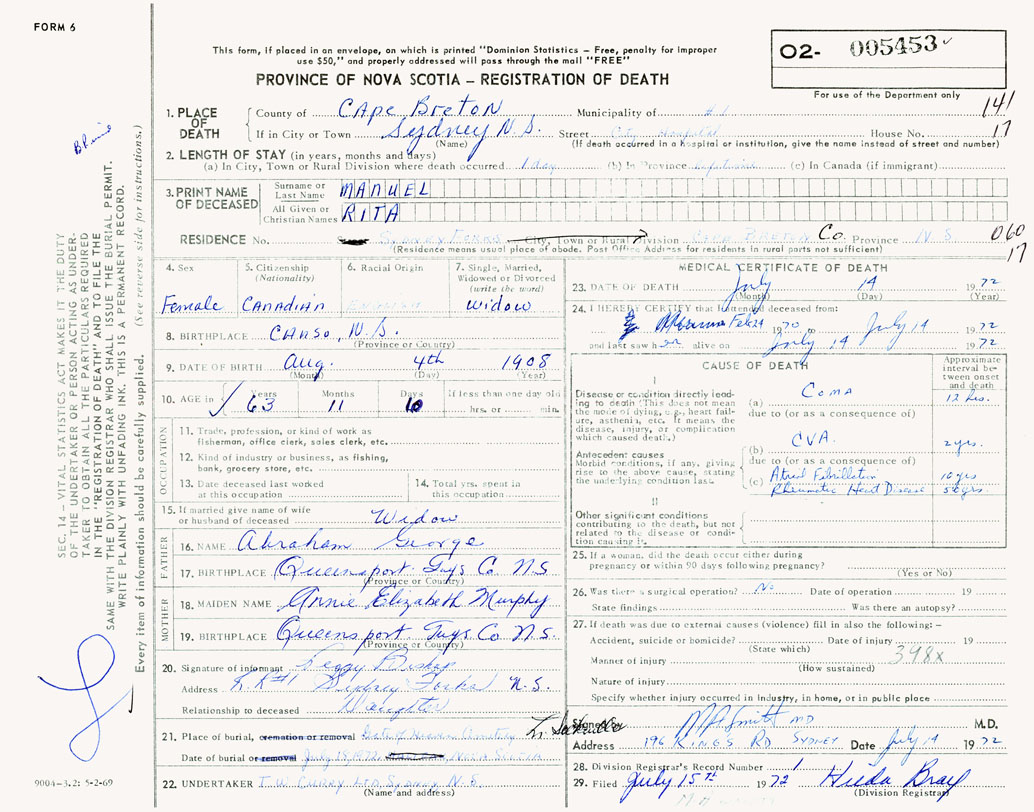 FORM 6
This form, if placed in an envelope, on which is printed "Dominion Statistics – Free, penalty for improper
use $50," and properly addressed will pass through the mail "FREE"
PROVINCE OF NOVA SCOTIA – REGISTRATION OF DEATH
O2- 005453
For use of the Department only
141
17
1. PLACE OF DEATH
County of CApe Breton Municipality of #1
If in City or Town Sydney N.S. Street City Hospital House No.
(Name) (If death occurred in a hospital or institution, give the name instead of street and number)
2. LENGTH OF STAY (in years, months and days)
(a) In City, Town or Rural Division where death occurred 1 day (b) In Province (c) In Canada (if immigrant)
3. PRINT NAME OF DECEASED
Surname or Last Name MANUEL
All Given or Christian Names RITA
RESIDENCE No. Sydney Forks City, Town or Rural Division CAPE BRETON Co. Province N S
(Residence means usual place of abode. Post Office Address for residents in rural parts not sufficient)
060
17
4. Sex Female
5. Citizenship (Nationality) CANADIAN
6. Racial Origin
7. Single, Married, Widowed or Divorced (write the word) Widow
8. BIRTHPLACE CANSO, N.S.
(Province or Country)
9. DATE OF BIRTH Aug. 4th 1908
(Month) (Day) (Year)
10. AGE in Years 63 Months 11 Days 10 If less than one day old hrs. or min.
OCCUPATION
11. Trade, profession, or kind of work as
fisherman, office clerk, sales clerk, etc.
12. Kind of industry or business, as fishing,
bank, grocery store, etc.
13. Date deceased last worked
at this occupation
14. Total yrs. spent in
this occupation
15. If married give name of wife
or husband of deceased Widow
FATHER
16. NAME Abraham George
17. BIRTHPLACE Queensport Guys Co N.S
(Province or Country)
MOTHER
18. MAIDEN NAME Annie Elizabeth Murphy
19. BIRTHPLACE Queensport Guys Co N.S.
(Province or Country)
20. Signature of informant Peggy Bishop
Address R.R #1 Sydney Forks N.S.
Relationship to deceased Daughter
21. Place of burial, cremation or removal Gate of Heaven Cemetery
Date of burial or removal July 18, 1972 NOVA SCOTIA
22. UNDERTAKER T. W. CURRY LTD, Sydney N.S
(Name and address)
MEDICAL CERTIFICATE OF DEATH
23. DATE OF DEATH July 14 1972
(Month) (Day) (Year)
24. I HEREBY CERTIFY that I attended deceased from:
Feb 24 1970 to July 14 1972
and last saw her alive on July 14 1972
CAUSE OF DEATH
Approximate interval between onset and death
I
Disease or condition directly leading to death (This does not mean the mode of dying, e.g., heart failure, asthenia, etc. It means the disease, injury, or complication which caused death.)
(a) Coma 12 hrs.
due to (or as a consequence of)
Antecedent causes
Morbid conditions, if any, giving rise to the above cause, stating the underlying condition last.
(b) CVA. 2 yrs.
due to (or as a consequence of)
(c) Atrial Fibrillation 10 yrs
Rheumatic Heart Disease 50 yrs.
II
Other significant conditions contributing to the death, but not related to the disease or condition causing it.
25. If a woman, did the death occur either during
pregnancy or within 90 days following pregnancy?
(Yes or No)
26. Was there a surgical operation? No Date of operation 19
State findings Was there an autopsy?
27. If death was due to external causes (violence) fill in also the following: –
Accident, suicide or homicide? Date of injury 19
(State which)
398x
Manner of injury
(How sustained)
Nature of injury
Specify whether injury occurred in Industry, in home, or in public place
Signed by M A Smith MD M.D.
Address 196 KINGS RD SYDNEY Date July 14 1972
28. Division Registrar's Record Number 1
29. Filed July 15th 1972 Hilda Bray
(Division Registrar)
SEC. 14 – VITAL STATISTICS ACT MAKES IT THE DUTY
OF THE UNDERTAKER OR PERSON ACTING AS UNDER-
TAKER TO OBTAIN ALL THE PARTICULARS REQUIRED
IN THE "REGISTRATION OF DEATH" AND TO FILE THE
SAME WITH THE DIVISION REGISTRAR WHO SHALL ISSUE THE BURIAL PERMIT.
WRITE PLAINLY WITH UNFADING INK. THIS IS A PERMANENT RECORD.
Every item of information should be carefully supplied. (See reverse side for instructions.)
9004-3.2: 5-2-69